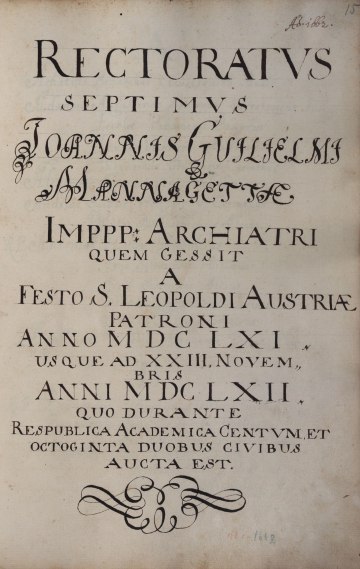 15
RECTORATVS
SEPTIMVS
IOANNIS GUILIELMI
MANNAGETTÆ
IMPPP: ARCHIATRI
QUEM GESSIT
A
FESTO S. LEOPOLDI AUSTRIÆ
PATRONI
ANNO MDCLXI.
USQUE AD XXIII, NOVEM„
BRIS
ANNI MDCLXII.
QUO DURANTE
RESPUBLICA ACADEMICA CENTVM, ET
OCTOGINTA DUOBUS CIVIBUS
AUCTA EST.